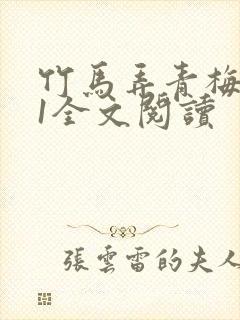 竹馬弄青梅
1全文閱讀
張雲雷的夫人